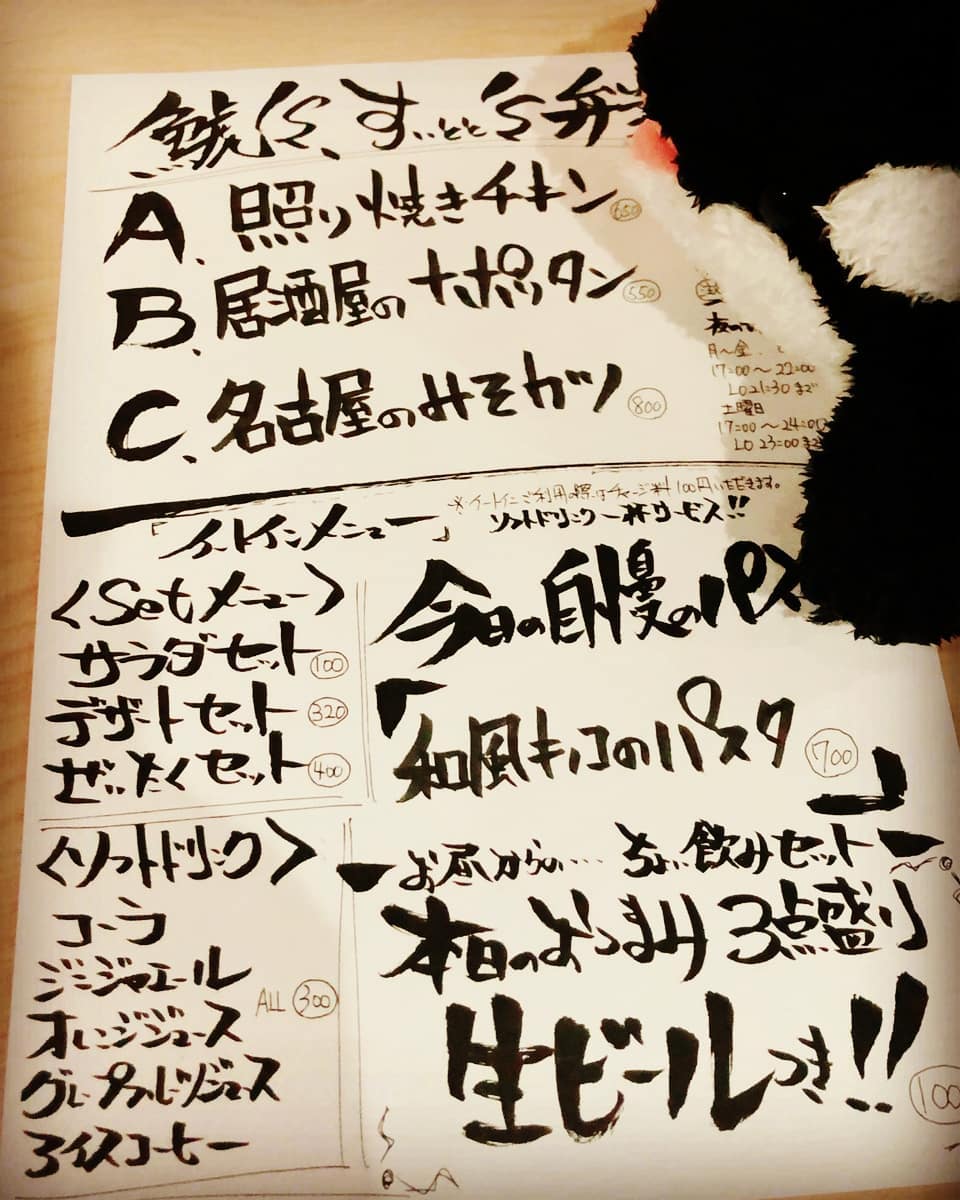 A、照り焼きチキン 650
B、居酒屋のナポリタン 550
C、名古屋のみそカツ 800
月〜金
17:00〜22:00
LO21:30まで
土曜日
17:00〜24:00
LO 23:00まで
※イートインご利用の際はチャージ料100円いただきます。
ソフトドリンク一杯サービス!!
「イートインメニュー」
〈Setメニュー〉
サラダセット 100
デザートセット 320
ぜいたくセット 400
今日の自慢のパス
「和風キノコのパスタ 700」
〈ソフトドリンク〉
コーラ
ジンジャエール
オレンジジュース
グレープフルーツジュース
アイスコーヒー
ALL 300
お昼からの… ちょい飲みセット
本日のおつまみ 3点盛り
生ビールつき!!
100